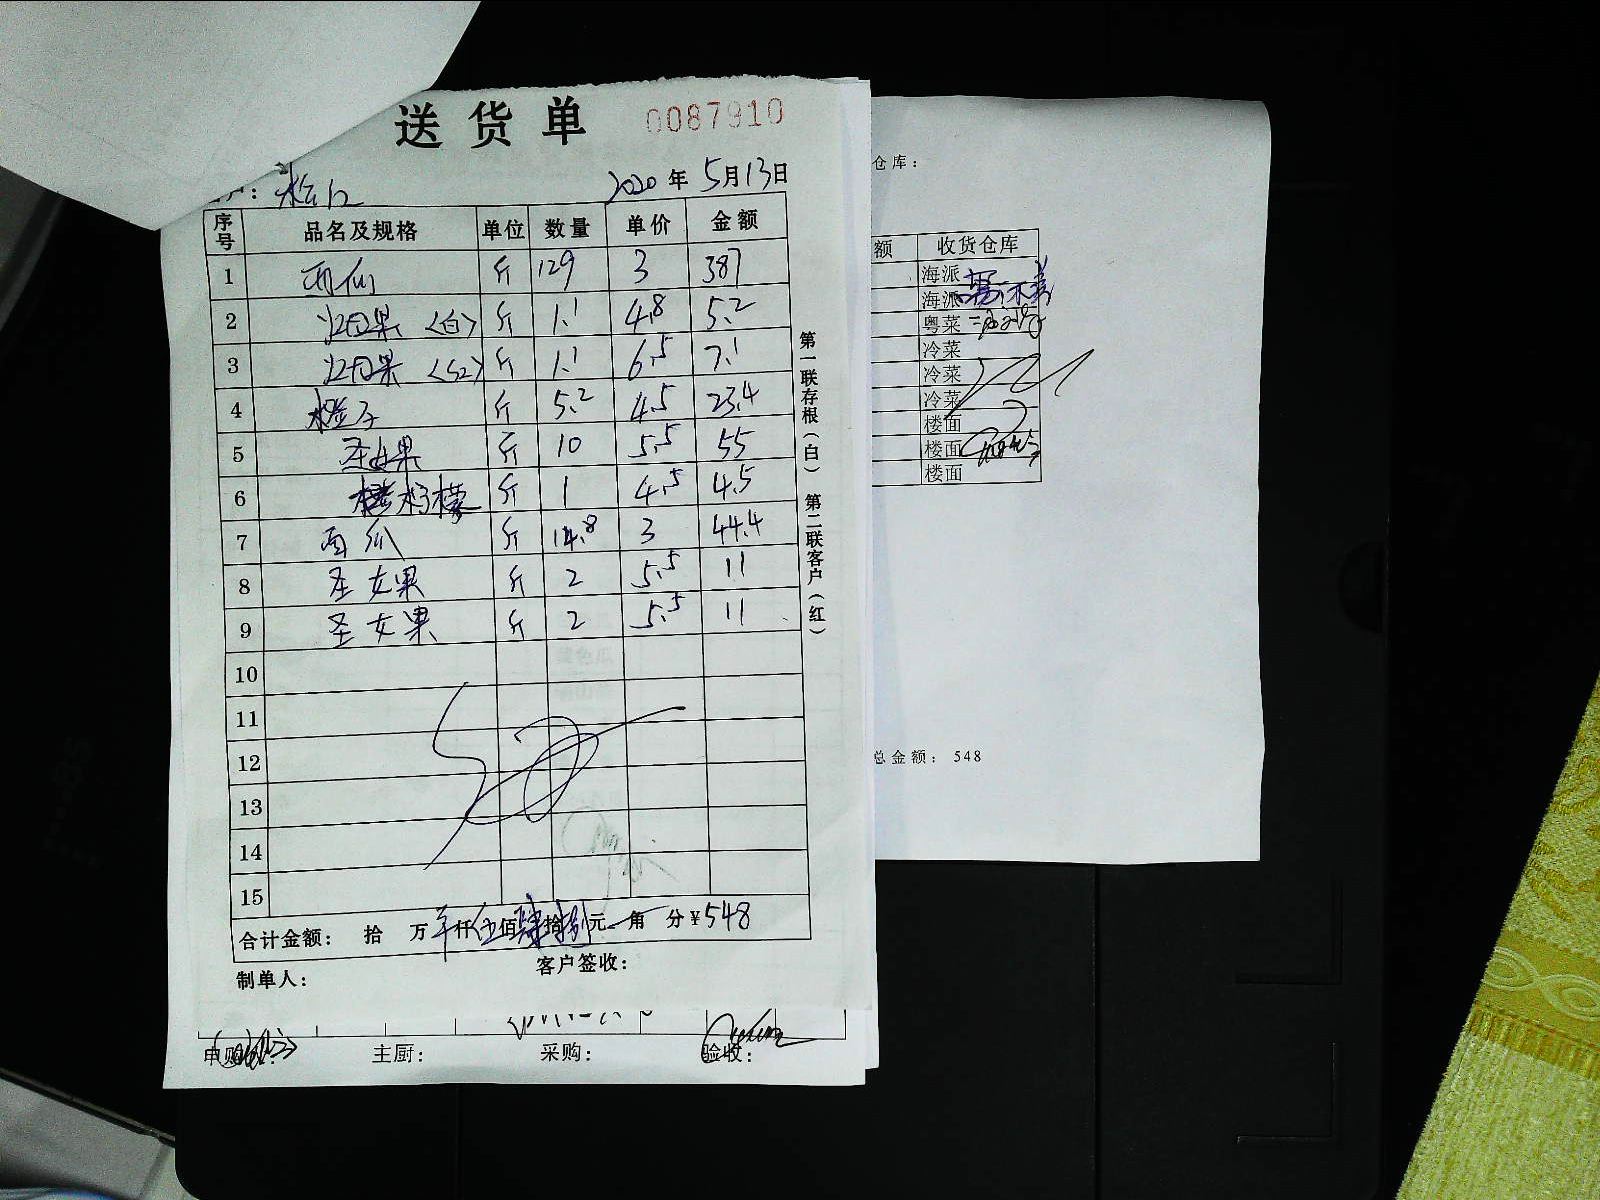 送货单 0087910
户: 松江 2020年5月13日
序号 品名及规格 单位 数量 单价 金额
1 斤 129 3 387
2 火龙果〈白〉 斤 1.1 4.8 5.2
3 火龙果〈红〉 斤 1.1 6.5 7.1
4 橙子 斤 5.2 4.5 23.4
5 圣女果 斤 10 5.5 55
6 柠檬 斤 1 4.5 4.5
7 西瓜 斤 14.8 3 44.4
8 圣女果 斤 2 5.5 11
9 圣女果 斤 2 5.5 11
10
11
12
13
14
15
合计金额: 拾 万 仟伍佰肆拾捌元 角 分¥548
制单人: 客户签收:
第一联存根(白) 第二联客户(红)
申购: 主厨: 采购: 验收:
仓库:
额 收货仓库
海派
海派
粤菜
冷菜
冷菜
冷菜
楼面
楼面
楼面
总金额: 548